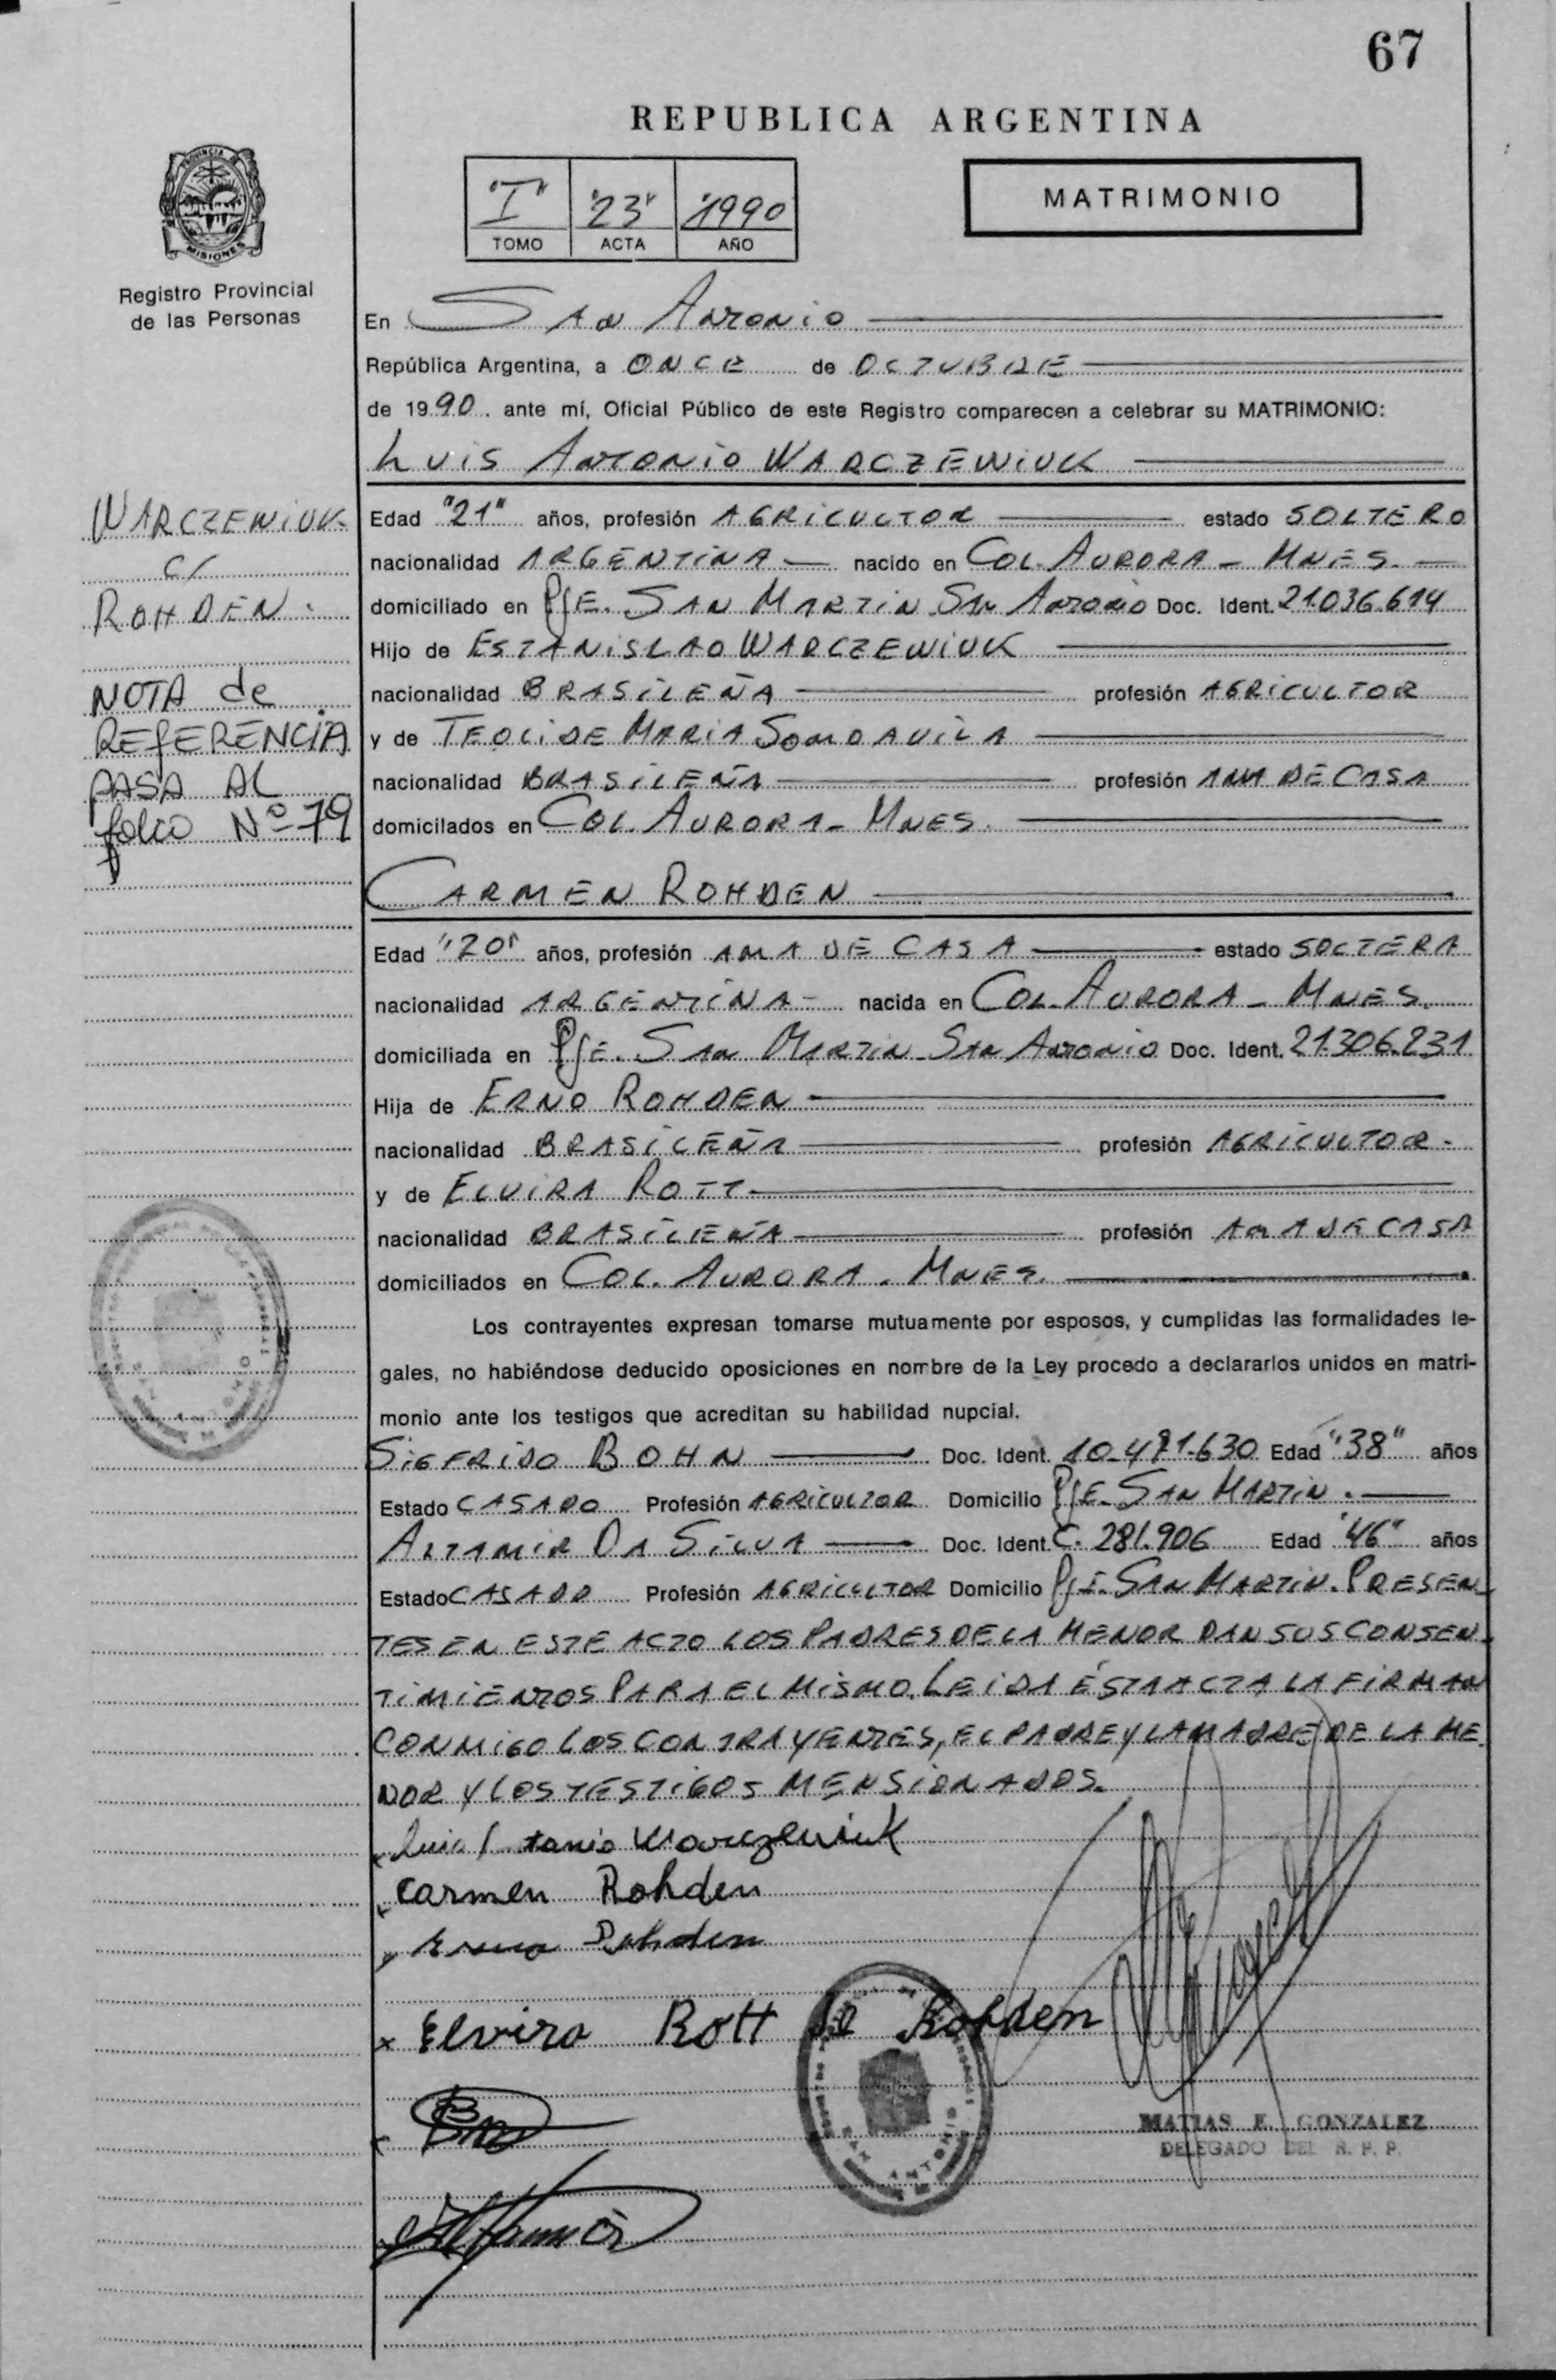 67
REPUBLICA ARGENTINA
"I" "23" "1990
TOMO ACTA AÑO
MATRIMONIO
PROVINCIA DE
MISIONES
Registro Provincial
de las Personas
En SAN ANTONIO
República Argentina, a ONCE de OCTUBRE
de 1990. ante mí, Oficial Público de este Registro comparecen a celebrar su MATRIMONIO:
LUIS ANTONIO WARCZEWIUK
WARCZEWIUK
c/
ROHDEN
NOTA de
REFERENCIA
PASA AL
folio Nº 79
Edad "21" años, profesión AGRICULTOR estado SOLTERO
nacionalidad ARGENTINA nacido en COL. AURORA - MNES.
domiciliado en PJE. SAN MARTIN SAN ANTONIO Doc. Ident. 21.036.614
Hijo de ESTANISLAO WARCZEWIUK
nacionalidad BRASILEÑA profesión AGRICULTOR
y de TEOLIDE MARIA SOMOAVILA
nacionalidad BRASILEÑA profesión AMA DE CASA
domicilados en COL. AURORA - MNES.
CARMEN ROHDEN
Edad "20" años, profesión AMA DE CASA estado SOLTERA
nacionalidad ARGENTINA - nacida en COL. AURORA - MNES.
domiciliada en PJE. SAN MARTIN - SAN ANTONIO Doc. Ident. 21.306.231
Hija de ERNO ROHDEN
nacionalidad BRASILEÑA profesión AGRICULTOR -
y de ELVIRA ROTT
nacionalidad BRASILEÑA profesión AMA DE CASA
domiciliados en COL. AURORA - MNES.
Los contrayentes expresan tomarse mutuamente por esposos, y cumplidas las formalidades le-
gales, no habiéndose deducido oposiciones en nombre de la Ley procedo a declararlos unidos en matri-
monio ante los testigos que acreditan su habilidad nupcial.
SIGFRIDO BOHN Doc. Ident. 10.471.630 Edad "38" años
Estado CASADO Profesión AGRICULTOR Domicilio PJE. SAN MARTIN.
ALTAMIR DA SILVA Doc. Ident. C. 281.906 Edad "46" años
Estado CASADO Profesión AGRICULTOR Domicilio PJE. SAN MARTIN. PRESEN-
TES EN ESTE ACTO LOS PADRES DE LA MENOR DAN SUS CONSEN-
TIMIENTOS PARA EL MISMO. LEIDA ÉSTA ACTA LA FIRMAN
CONMIGO LOS CONTRAYENTES, EL PADRE Y LA MADRE DE LA ME
NOR Y LOS TESTIGOS MENSIONADOS.
Luis Antonio Warczewiuk
Carmen Rohden
Erno Rohden
Elvira Rott de Rohden
MATIAS E. GONZALEZ
DELEGADO DEL R. P. P.